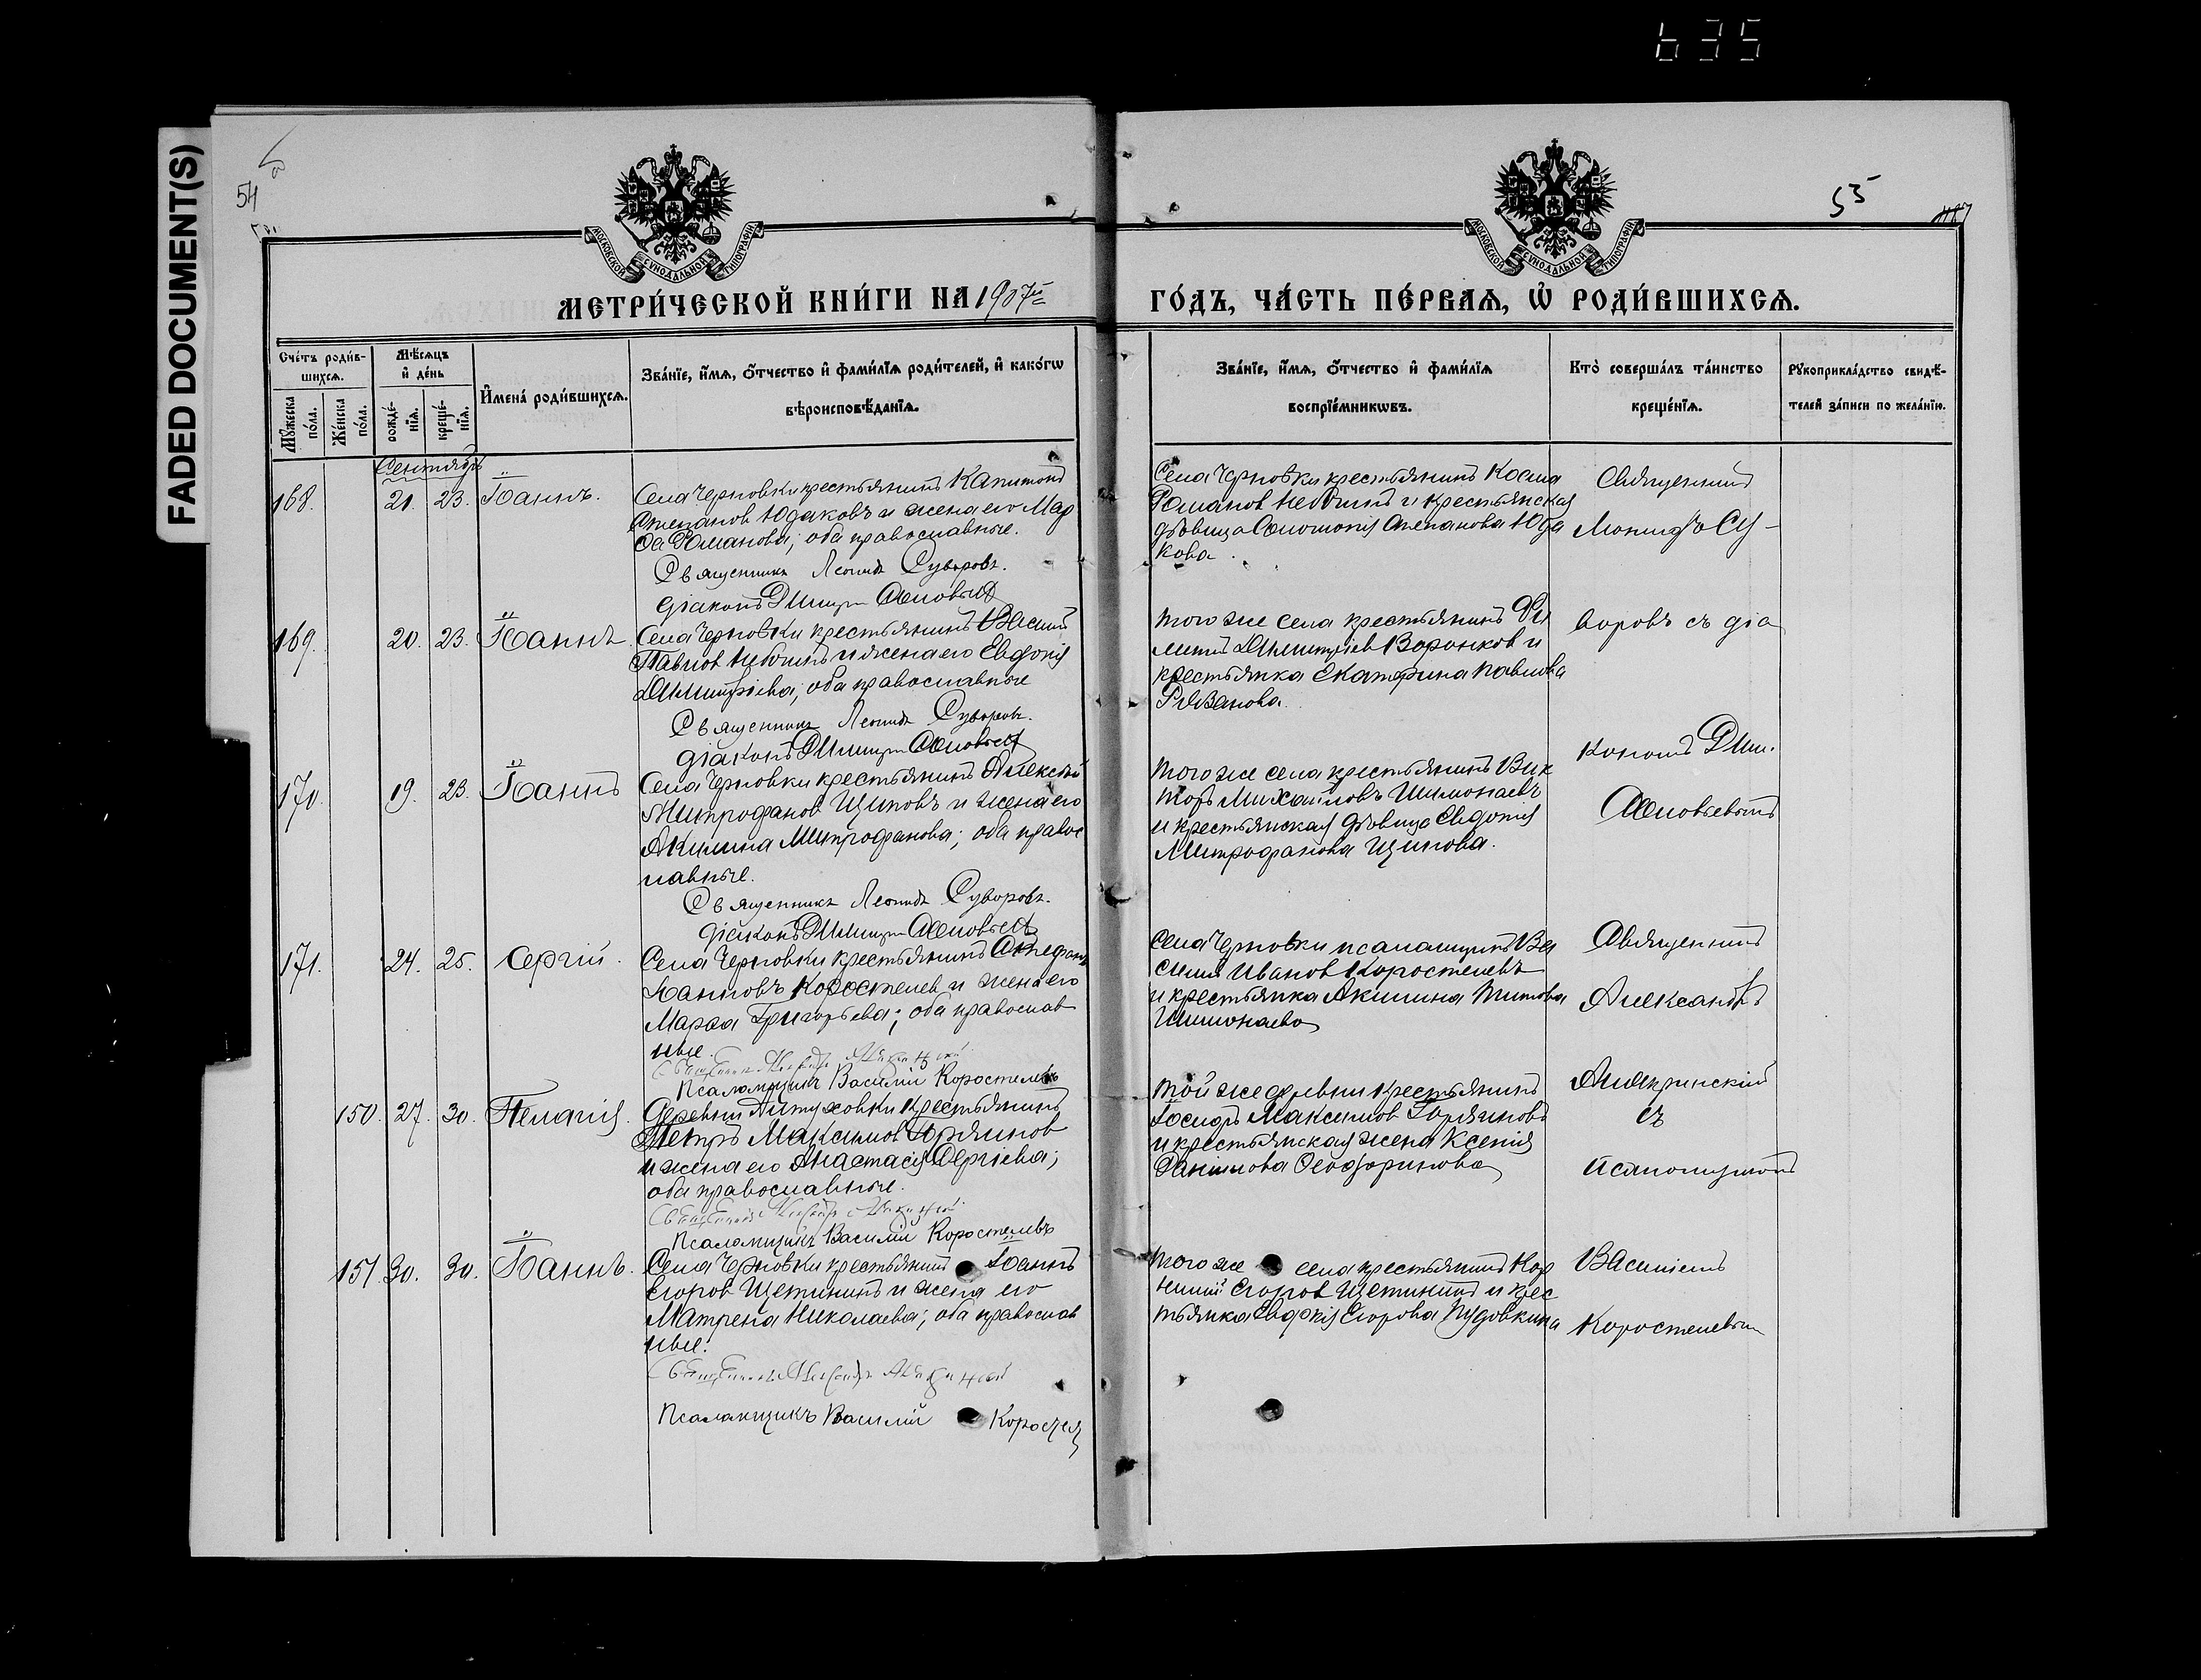 635
FADED DOCUMENT(S)
54
55
МОСКОВСКОЙ СѴНОДАЛЬНОЙ ТИПОГРАФІИ
МОСКОВСКОЙ СѴНОДАЛЬНОЙ ТИПОГРАФІИ
МЕТРИ́ЧЕСКОЙ КНИ́ГИ НА 1907й
ГО́ДЪ, ЧА́СТЬ ПЕ́РВАѦ, Ѡ҆ РОДИ́ВШИХСѦ.
Сче́тъ роди́в-
шихсѧ.
Мꙋ́жеска по́ла.
Же́нска по́ла.
Мѣ́сѧцъ
и҆ де́нь
рожде́-
нїѧ.
креще́-
нїѧ.
И҆мена̀ роди́вшихсѧ.
Зва́нїе, и҆́мѧ, ѻ҆́тчество и҆ фами́лїѧ роди́телей, и҆ како́гѡ
вѣроисповѣ́данїѧ.
Зва́нїе, и҆́мѧ, ѻ҆́тчество и҆ фами́лїѧ
воспрїе́мникѡвъ.
Кто̀ соверша́лъ та́инство
креще́нїѧ.
Рꙋкоприкла́дство свидѣ́-
телей за́писи по жела́нїю.
Сентябрь
168. 21. 23. Іоаннъ.
Села Черновки крестьянинъ Капитонъ
Степанов Юдаковъ и жена его Мар
ѳа Романова; оба православные.
Священникъ Леонидъ Суворовъ.
діаконъ Димитри
Села Черновки крестьянинъ Косма
Романов и крестьянская
дѣвица Соломонія Степанова Юда
кова.
Священник
Леонидъ Су-
169. 20. 23. Іоаннъ
Села Черновки крестьянинъ Василий
Павлов и жена его Евдокія
Димитріева; оба православные
Священникъ Леонидъ Суворовъ.
діаконъ Димитри
того же села крестьянинъ Фи
липп Димитріев Воронков и
крестьянка Екатерина Павлова
Рязанова.
воровъ съ діа
170. 19. 23. Іоаннъ
Села Черновки крестьянинъ Алексѣй
Митрофанов Щиповъ и жена его
Акилина Митрофанова; оба правос
лавные.
Священникъ Леонидъ Суворовъ.
діаконъ Димитри
того же села крестьянинъ Вик
торъ Михаиловъ Шимонаевъ
и крестьянская дѣвица Евдокія
Митрофанова Щипова.
кономъ Дим.
171. 24. 25. Сергій.
Села Черновки крестьянинъ Стефанъ
Іоанновъ Коростелев и жена его
Марѳа Григорьева; оба православ
ные.
Псаломщикъ Василій Коростелевъ
Села Черновки псаломщикъ Ва
силий Иванов Коростелевъ
и крестьянка Акилина Титова
Шимонаева
Священникъ
Александръ
150. 27. 30. Пелагія.
Деревни крестьянинъ
Петръ Максимов
и жена его Анастасія Сергіева;
оба православные.
Псаломщикъ Василій Коростелевъ
той же деревни крестьянинъ
Іосифъ Максимов
и крестьянская жена Ксенія
съ
псаломщиком
151. 30. 30. Іоаннъ.
Села Черновки крестьянинъ Іоаннъ
Егоров Щетининъ и жена его
Матрена Николаева; оба православ
ные.
Псаломщикъ Василій Коростел
того же села крестьянинъ Кор
нилий Егоров Щетининъ и крес
тьянка Евдокія Егорова Пудовкина
Василіемъ
Коростелевым